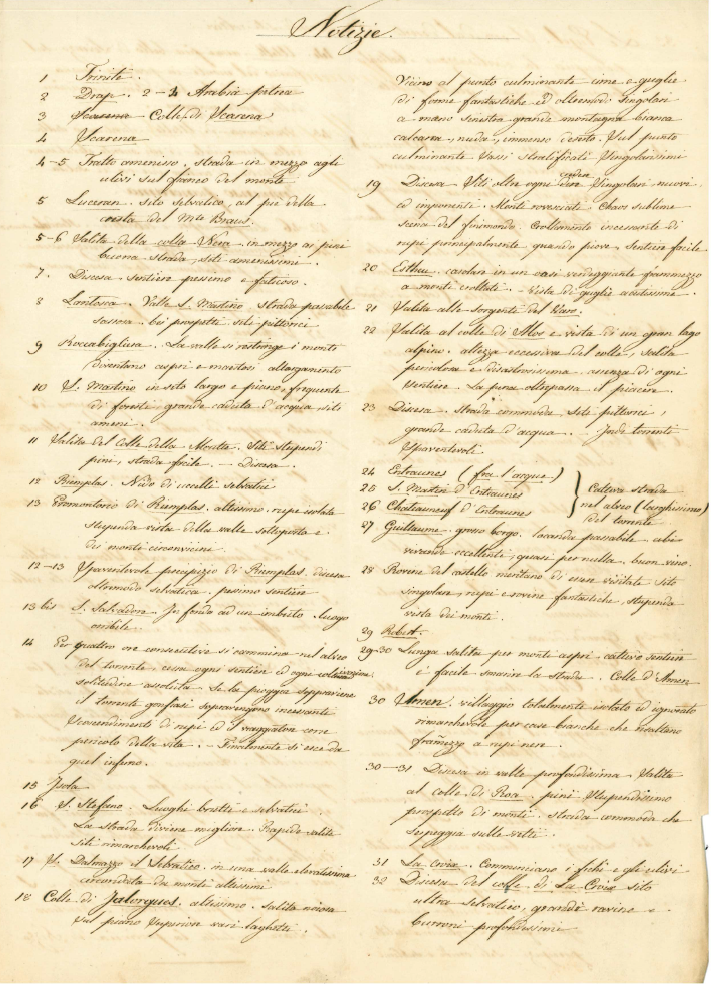 Notizie.
1 Trinité.
2 Drap. 2-3 Arabia petrea
3 Scarena Colle di Scarena
4 Scarena
4-5 Tratto amenisso. strada in mezzo agli
ulivi sul fianco del monte
5 Luceran. sito selvatico, al piè della
cresta del Mte Braus.
5-6 Salita della colla Nera. in mezzo ai pini
buona strada, siti amenissimi.
7. Discesa sentiere pessimo e faticoso.
8 Lantosca. Valle S. Martino strada passabile
sassosa. bei prospetti siti pittorici
9 Roccabigliera. La valle si restringe i monti
diventano aspri e maestosi allargamento
10 S. Martino in sito largo e piano, frequente
di foreste, grande caduta d'acqua, siti
ameni.
11 Salita del Colle della Monta. Siti stupendi
pini, strada facile. - Discesa.
12 Rimplas. Nido di uccelli selvatici
13 Promontorio di Rimplas. altissimo. rupe isolata
stupenda vista della valle sottoposta e
dei monti circonvicini.
12-13 Spaventevole precipizio di Rimplas. discesa
oltremodo selvatica, pessimo sentiere
13 bis S. Salvadore. In fondo ad un imbuto. luogo
orribile.
14 Per quattro ore consecutive si cammina nel alveo
del torrente. cessa ogni sentiere ed ogni coltivazione
solitudine assoluta. Se la pioggia sopravviene
il torrenti gonfiasi sopravengono incessanti
scoscendimenti di rupi ed il viaggiatore corre
pericolo della vita. - Finalmente si esce da
quel inferno.
15 Isola
16 S. Stefano. Luoghi brutti e selvatici.
La strada diviene migliore. Rapide salite
siti rimarchevoli.
17 S. Dalmazzo il Selvatico. in una valle elevatissima
circondata da monti altissimi
18 Colle di Jalorgues. altissimo. salita noiosa
sul piano superiore vari laghetti,
Vicino al punto culminante cime e guglie
di forme fantastiche ed oltremodo singolari
a mano sinistra grande montagna bianca
calcarea, nuda, immenso deserto. Sul punto
culminante sassi stratificati singolarissimi
19 Discesa Siti oltre ogni credere singolari, nuovi
ed imponenti. Monti rovesciati. Chaos sublime
scena del finimondo. Crollamento incessante di
rupi principalmente quando piove. sentiere facile.
20 Estheu. casolari in un oasi verdeggiante frammezzo
a monti crollati. - Vista di guglie acutissime.
21 Salita alle sorgenti del Varo.
22 Salita al colle di Alos e vista di un gran lago
alpino. altezza eccessiva del colle, salita
pericolosa e disastrosissima. assenza di ogni
sentiere. La pena oltrepassa il piacere.
23 Discesa. strada commoda, siti pittorici,
grande caduta d'acqua. Indi torrenti
spaventevoli
24 Entraunes (fra l'acque)
25 S. Martin d'Entraunes
26 Chateauneuf d'Entraunes
} Cattiva strada
nel alveo (larghissimo)
del torrente
27 Guillaume. grosso borgo. locanda passabile. cibi
vivande eccellenti, quasi per nulla. buon vino.
28 Rovine del castello meritano di esser visitate sito
singolare, rupi e rovine fantastiche, stupenda
vista dei monti.
29 Robert.
29-30 Lunga salita per monti aspri cattivo sentiere
è facile smarrire la strada. Colle d'Amen
30 Amen. villaggio totalmente isolato ed ignorato
rimarchevole per case bianche che risaltano
frammezzo a rupi nere.
30-31 Discesa in valle profondissima. Salita
al colle di Roa. pini stupendissimo
prospetto di monti. strada commoda che
serpeggia sulle vette.
31 La Croix. Comminciano i fichi e gli ulivi
32 Discesa del colle di La Croix sito
ultra selvatico, grandi ravine e
burroni profondissimi